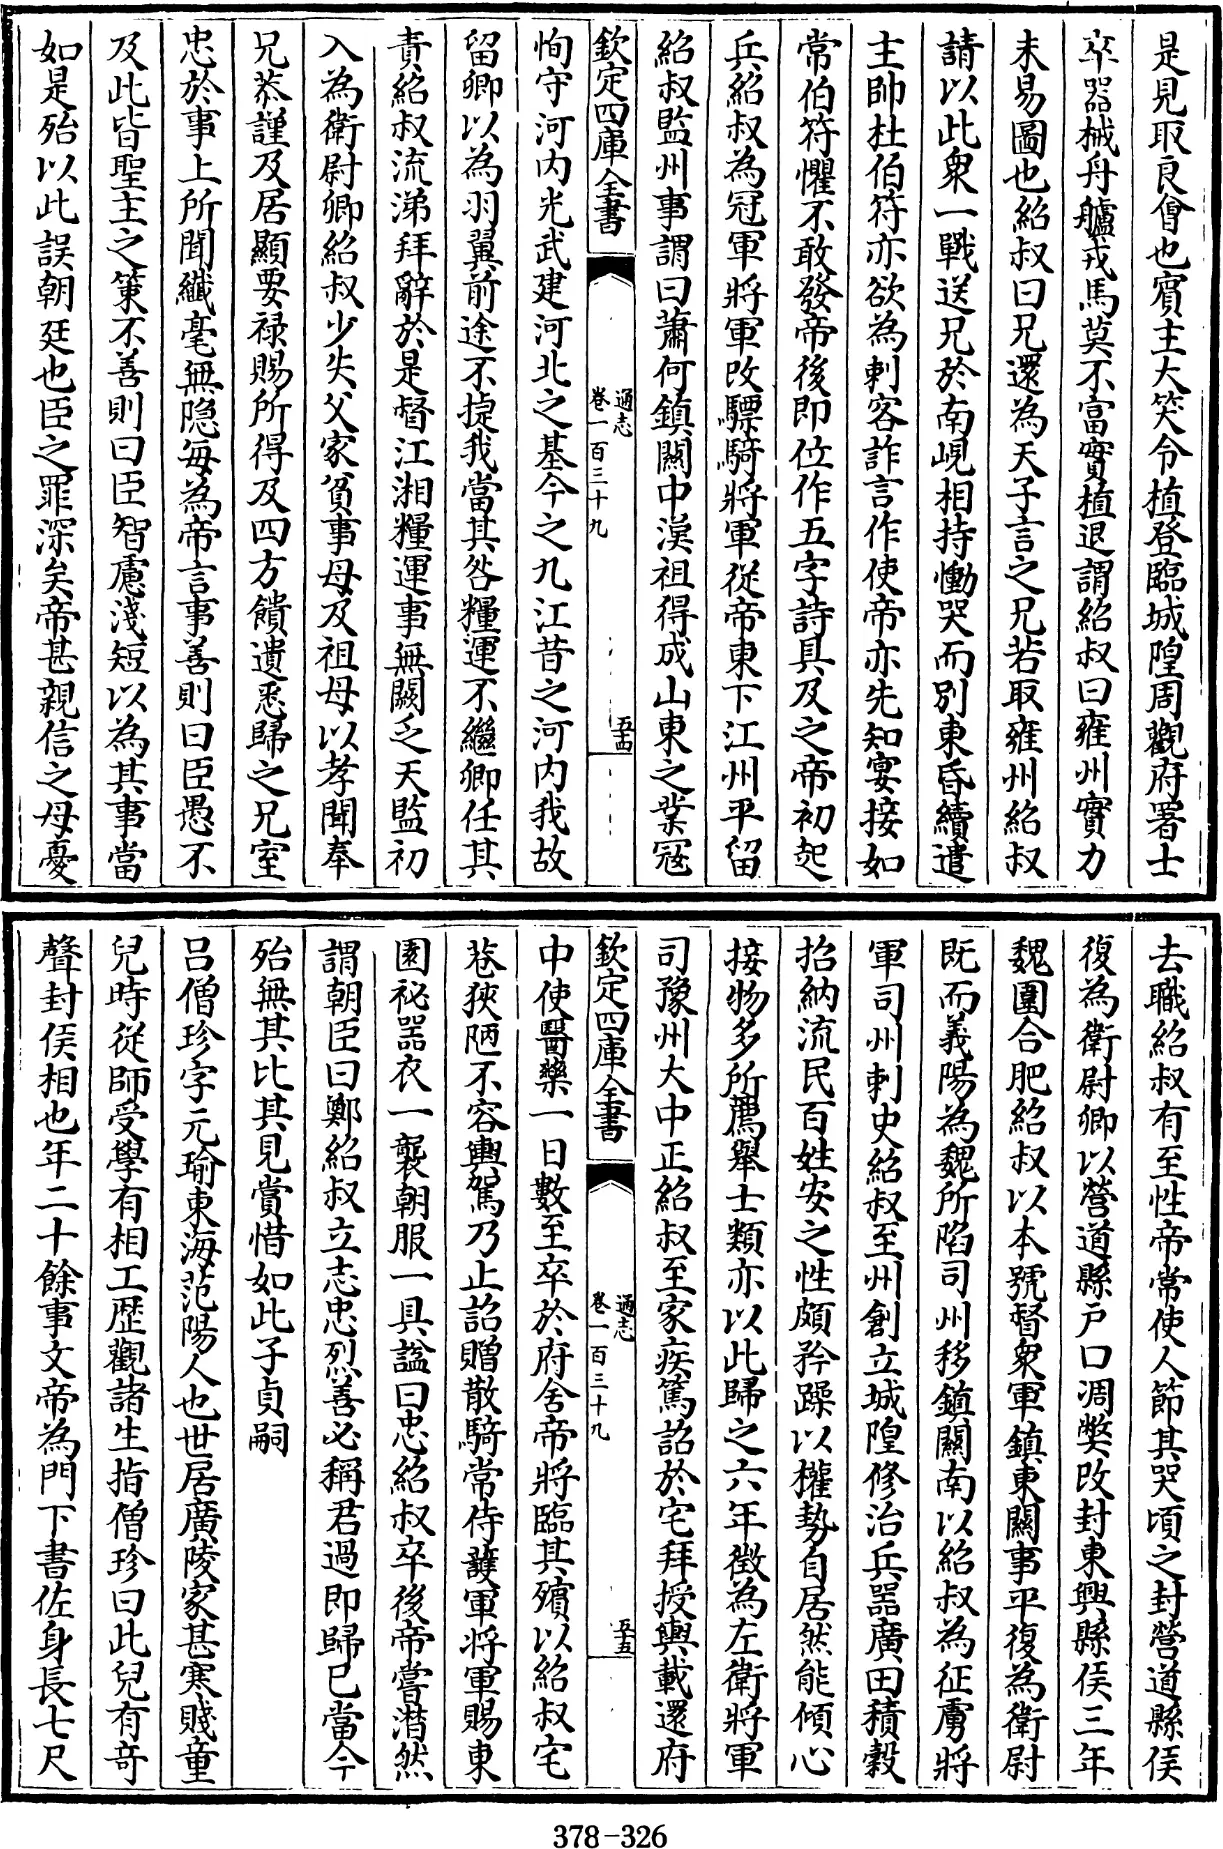 是見取良㑹也賓主大笑令植登臨城隍周觀府署士
卒器械舟艫戎馬莫不富實植退謂紹叔曰雍州實力
未易圖也紹叔曰兄還為天子言之兄若取雍州紹叔
請以此衆一戰送兄於南峴相持慟哭而别東昏續遣
主帥杜伯符亦欲為刺客詐言作使帝亦先知宴接如
常伯符懼不敢發帝後即位作五字詩具及之帝初起
兵紹叔為冠軍將軍改驃騎將軍從帝東下江州平留
紹叔監州事謂曰蕭何鎮關中漢祖得成山東之業冦
欽定四庫全書
通志
卷一百三十九
五十四
恂守河内光武建河北之基今之九江昔之河内我故
留卿以為羽翼前途不捷我當其咎糧運不繼卿任其
責紹叔流涕拜辭於是督江湘糧運事無闕乏天監初
入為衛尉卿紹叔少失父家貧事母及祖母以孝聞奉
兄恭謹及居顯要禄賜所得及四方饋遺悉歸之兄室
忠於事上所聞纎毫無隠每為帝言事善則曰臣愚不
及此皆聖主之策不善則曰臣智慮淺短以為其事當
如是殆以此誤朝廷也臣之罪深矣帝甚親信之母憂
去職紹叔有至性帝常使人節其哭頃之封營道縣侯
復為衛尉卿以營道縣户口凋弊改封東興縣侯三年
魏圍合肥紹叔以本號督衆軍鎮東關事平復為衛尉
既而義陽為魏所陷司州移鎮關南以紹叔為征虜將
軍司州刺史紹叔至州創立城隍修治兵器廣田積穀
招納流民百姓安之性頗矜躁以權勢自居然能傾心
接物多所薦舉士類亦以此歸之六年徵為左衛將軍
司豫州大中正紹叔至家疾篤詔於宅拜授輿載還府
欽定四庫全書
通志
卷一百三十九
五十五
中使醫藥一日數至卒於府舍帝將臨其殯以紹叔宅
巷狹陋不容輿駕乃止詔贈散騎常侍䕶軍將軍賜東
園祕器衣一襲朝服一具諡曰忠紹叔卒後帝嘗潸然
謂朝臣曰鄭紹叔立志忠烈善必稱君過即歸已當今
殆無其比其見賞惜如此子貞嗣
吕僧珍字元瑜東海范陽人也世居廣陵家甚寒賤童
兒時從師受學有相工歴觀諸生指僧珍曰此兒有竒
聲封侯相也年二十餘事文帝為門下書佐身長七尺
378-326